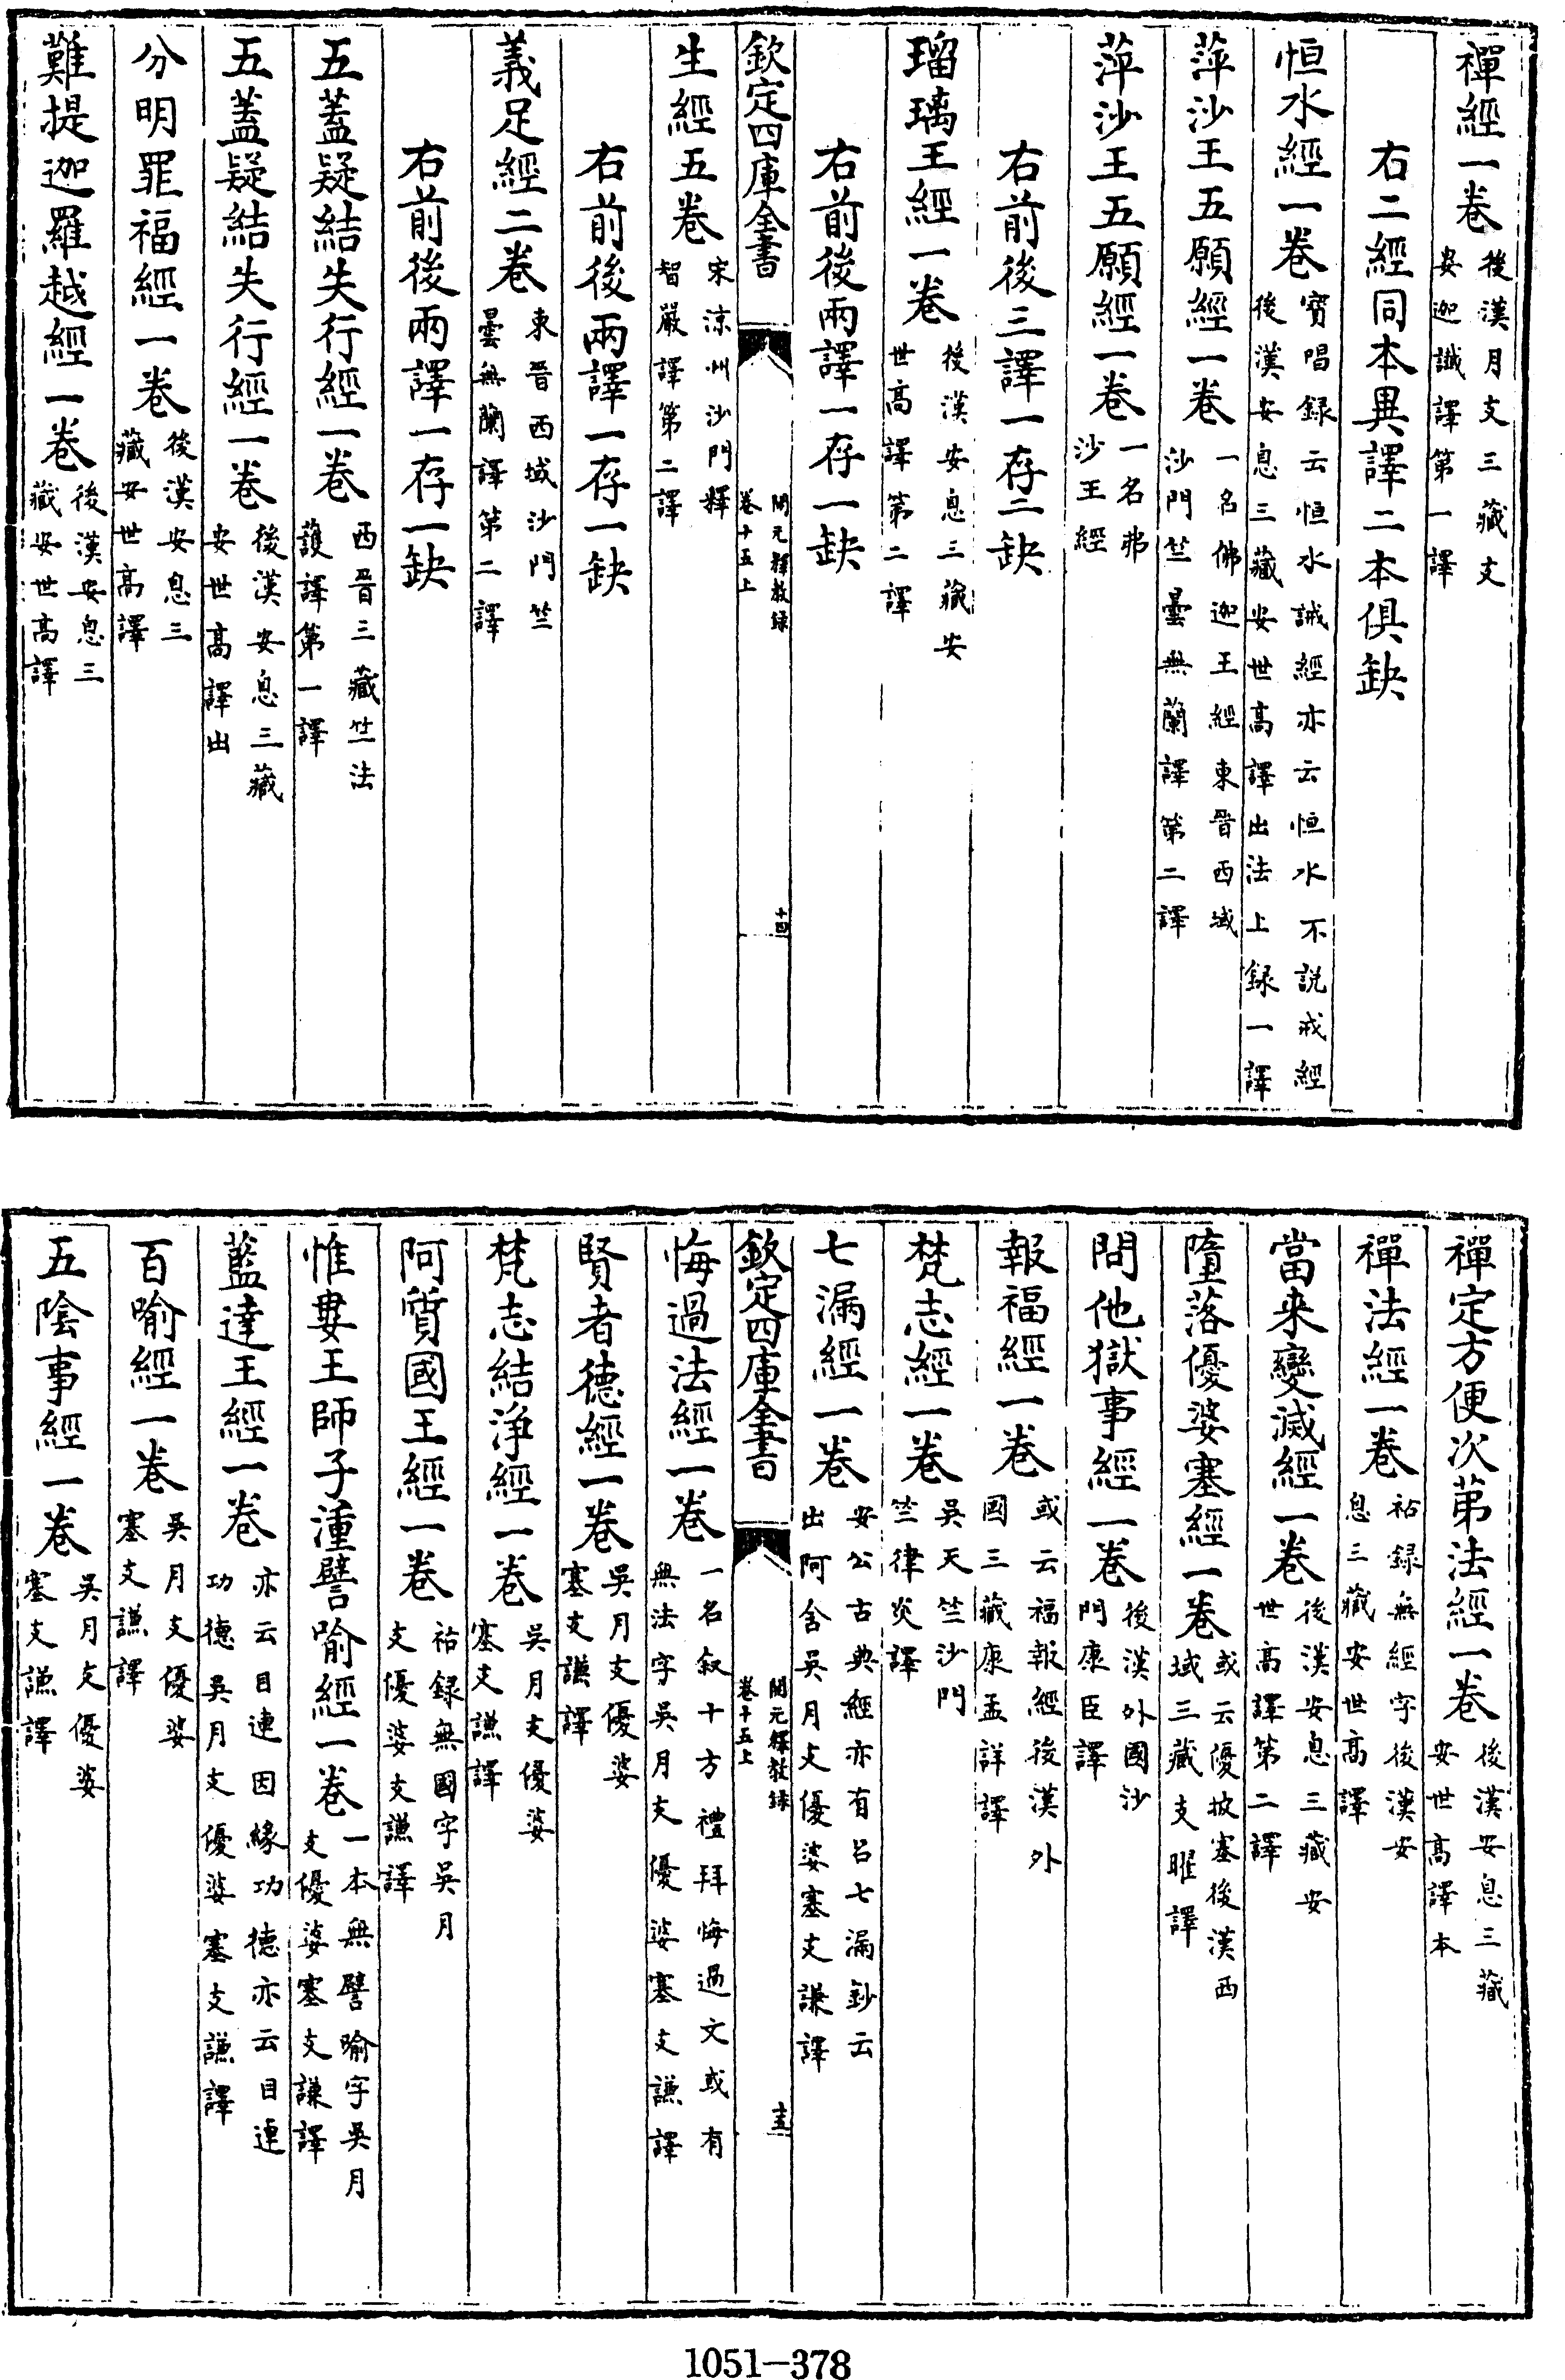 禪經一卷後漢月支三藏支
婁迦讖譯第一譯
右二經同本異譯二本俱缺
恒水經一卷寳唱録云恒水誡經亦云恒水不説戒經
後漢安息三藏安世高譯出法上録一譯
萍沙王五願經一卷一名佛迦王經東晉西域
沙門竺曇無蘭譯第二譯
萍沙王五願經一卷一名弗
沙王經
右前後三譯一存二缺
瑠璃王經一卷後漢安息三藏安
世高譯第二譯
右前後兩譯一存一缺
欽定四庫全書
開元釋教録
卷十五上
十四
生經五卷宋涼州沙門釋
智嚴譯第二譯
右前後兩譯一存一缺
義足經二卷東晉西域沙門竺
曇無蘭譯第二譯
右前後兩譯一存一缺
五蓋疑結失行經一卷西晉三藏竺法
護譯第一譯
五蓋疑結失行經一卷後漢安息三藏
安世高譯出
分明罪福經一卷後漢安息三
藏安世高譯
難提迦羅越經一卷後漢安息三
藏安世高譯
禪定方便次第法經一卷後漢安息三藏
安世高譯本
禪法經一卷祐録無經字後漢安
息三藏安世高譯
當来變滅經一卷後漢安息三藏安
世高譯第二譯
墮落優婆塞經一卷或云優披塞後漢西
域三藏支曜譯
問他獄事經一卷後漢外國沙
門康臣譯
報福經一卷或云福報經後漢外
國三藏康孟詳譯
梵志經一卷吳天竺沙門
竺律炎譯
七漏經一卷安公古典經亦有呂七漏鈔云
出阿含吳月支優婆塞支謙譯
欽定四庫全書
開元釋教録
卷十五上
十五
悔過法經一卷一名叙十方禮拜悔過文或有
無法字吳月支優婆塞支謙譯
賢者德經一卷吳月支優婆
塞支謙譯
梵志結浄經一卷吳月支優婆
塞支謙譯
阿質國王經一卷祐録無國字吳月
支優婆支謙譯
惟婁王師子湩譬喻經一卷一本無譬喻字吳月
支優婆塞支謙譯
藍達王經一卷亦云目連因緣功德亦云目連
功德吳月支優婆塞支謙譯
百喻經一卷吳月支優婆
塞支謙譯
五陰事經一卷吳月支優婆
塞支謙譯
1051—378